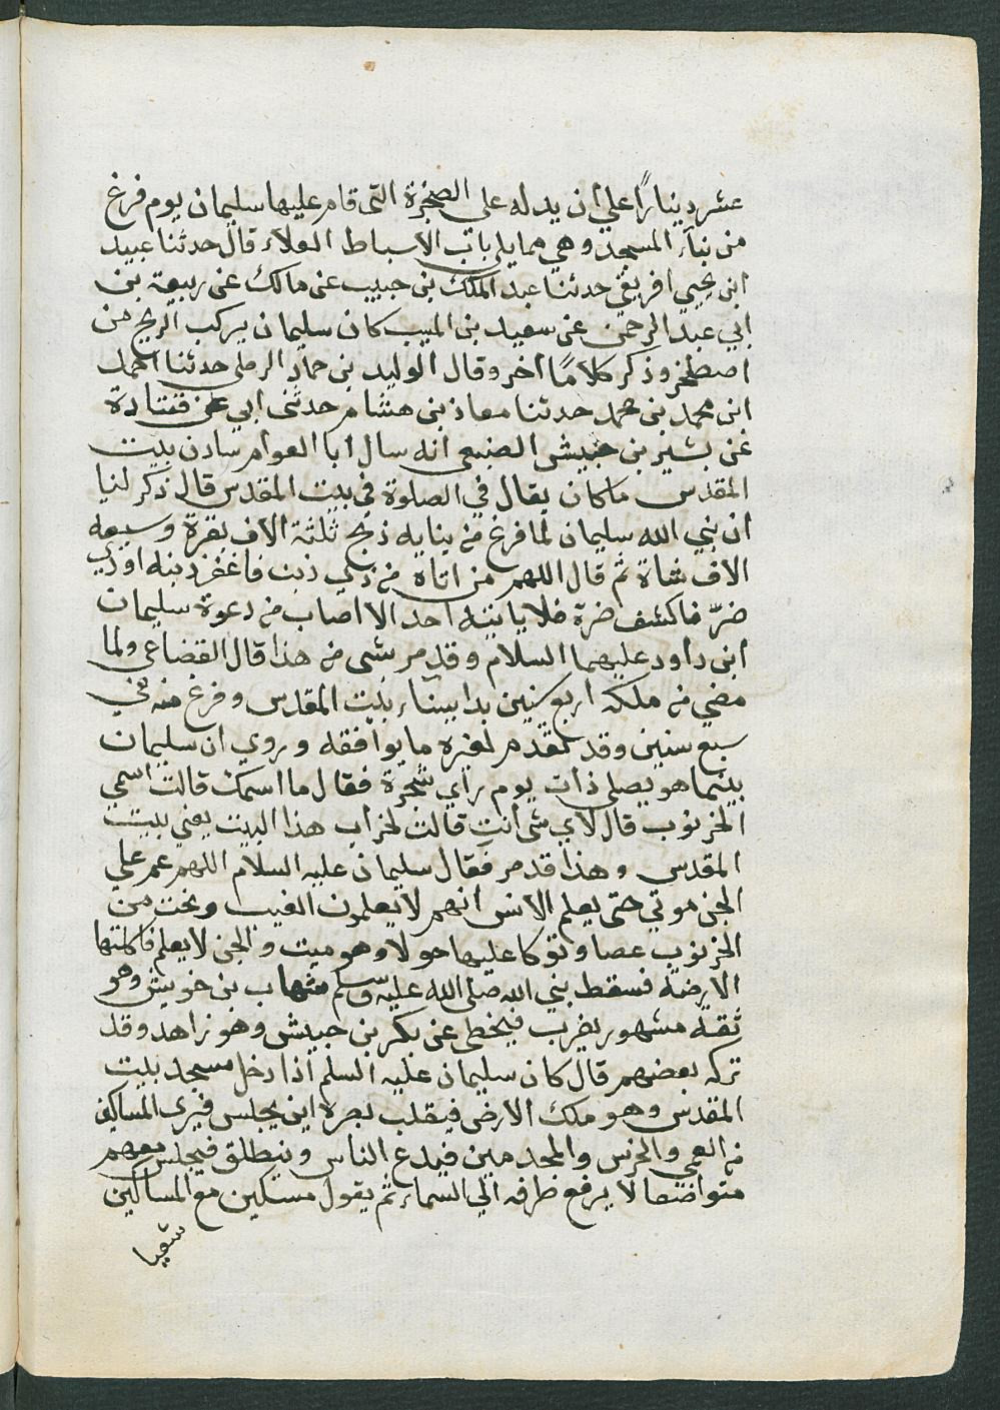 عشر دينارًا علي أن يدله على الصخرة التى قام عليها سليمان يوم فرغ
من بناء المسجد وهي مما يلي باب الاسباط العلاء قال حدثنا عبيد
ابن يحيي افريقي حدثنا عبد الملك بن حبيب عن مالك عن ربيعة بن
ابي عبد الرحمن عن سعيد بن المسيب كان سليمان يركب الريح من
اصطخر وذكر كلامًا آخر وقال الوليد بن حماد الرملي حدثنا احمد
ابن محمد بن حمد حدثنا معاذ بن هشام حدثنى ابي عن قتادة
عن بشير بن حبيش الضبعى انه سال ابا العوام سادن بيت
المقدس ما كان يقال في الصلوة في بيت المقدس قال ذكر لنا
ان نبي الله سليمان لما فرغ من بنايه ذبح ثلثة الاف بقرة وسبعه
الاف شاة ثم قال اللهم من اتاه من ذي ذنب فاغفر ذنبه او ذي
ضرّ فاكشف ضره فلا ياتيه احد الا اصاب من دعوة سليمان
ابن داود عليهما السلام وقد مر شى من هذا قال القضاعى ولما
مضي من ملكه اربع سنين بدا ببناء بيت المقدس وفرغ منه في
سبع سنين وقد تقدم لغيره ما يوافقه وروي ان سليمان
بينما هو يصلي ذات يوم راي شجرة فقال ما اسمك قالت اسمي
الخرنوب قال لاي شى انت قالت لخراب هذا البيت يعني بيت
المقدس وهذا قد مر فقال سليمان عليه السلام اللهم عم علي
الجن موتي حتى يعلم الانس انهم لا يعلمون الغيب ونحت من
الخرنوب عصا وتوكا عليها حولا وهو ميت والجن لا يعلم فاكلتها
الارضة فسقط نبي الله صلى الله عليه وسلم شهاب بن خويش وهو
ثقة مشهور يغرب فيخطى عن بكر بن حبيش وهو زاهد وقد
تركه بعضهم قال كان سليمان عليه السلم اذا دخل مسجد بيت
المقدس وهو ملك الارض فيقلب بصره اين يجلس فيرى المساكين
من العمي والخرس والمجذمين فيدع الناس وينطلق فيجلس معهم
متواضعا لا يرفع طرفه الي السماء ثم يقول مسكين مع المساكين
شعيا